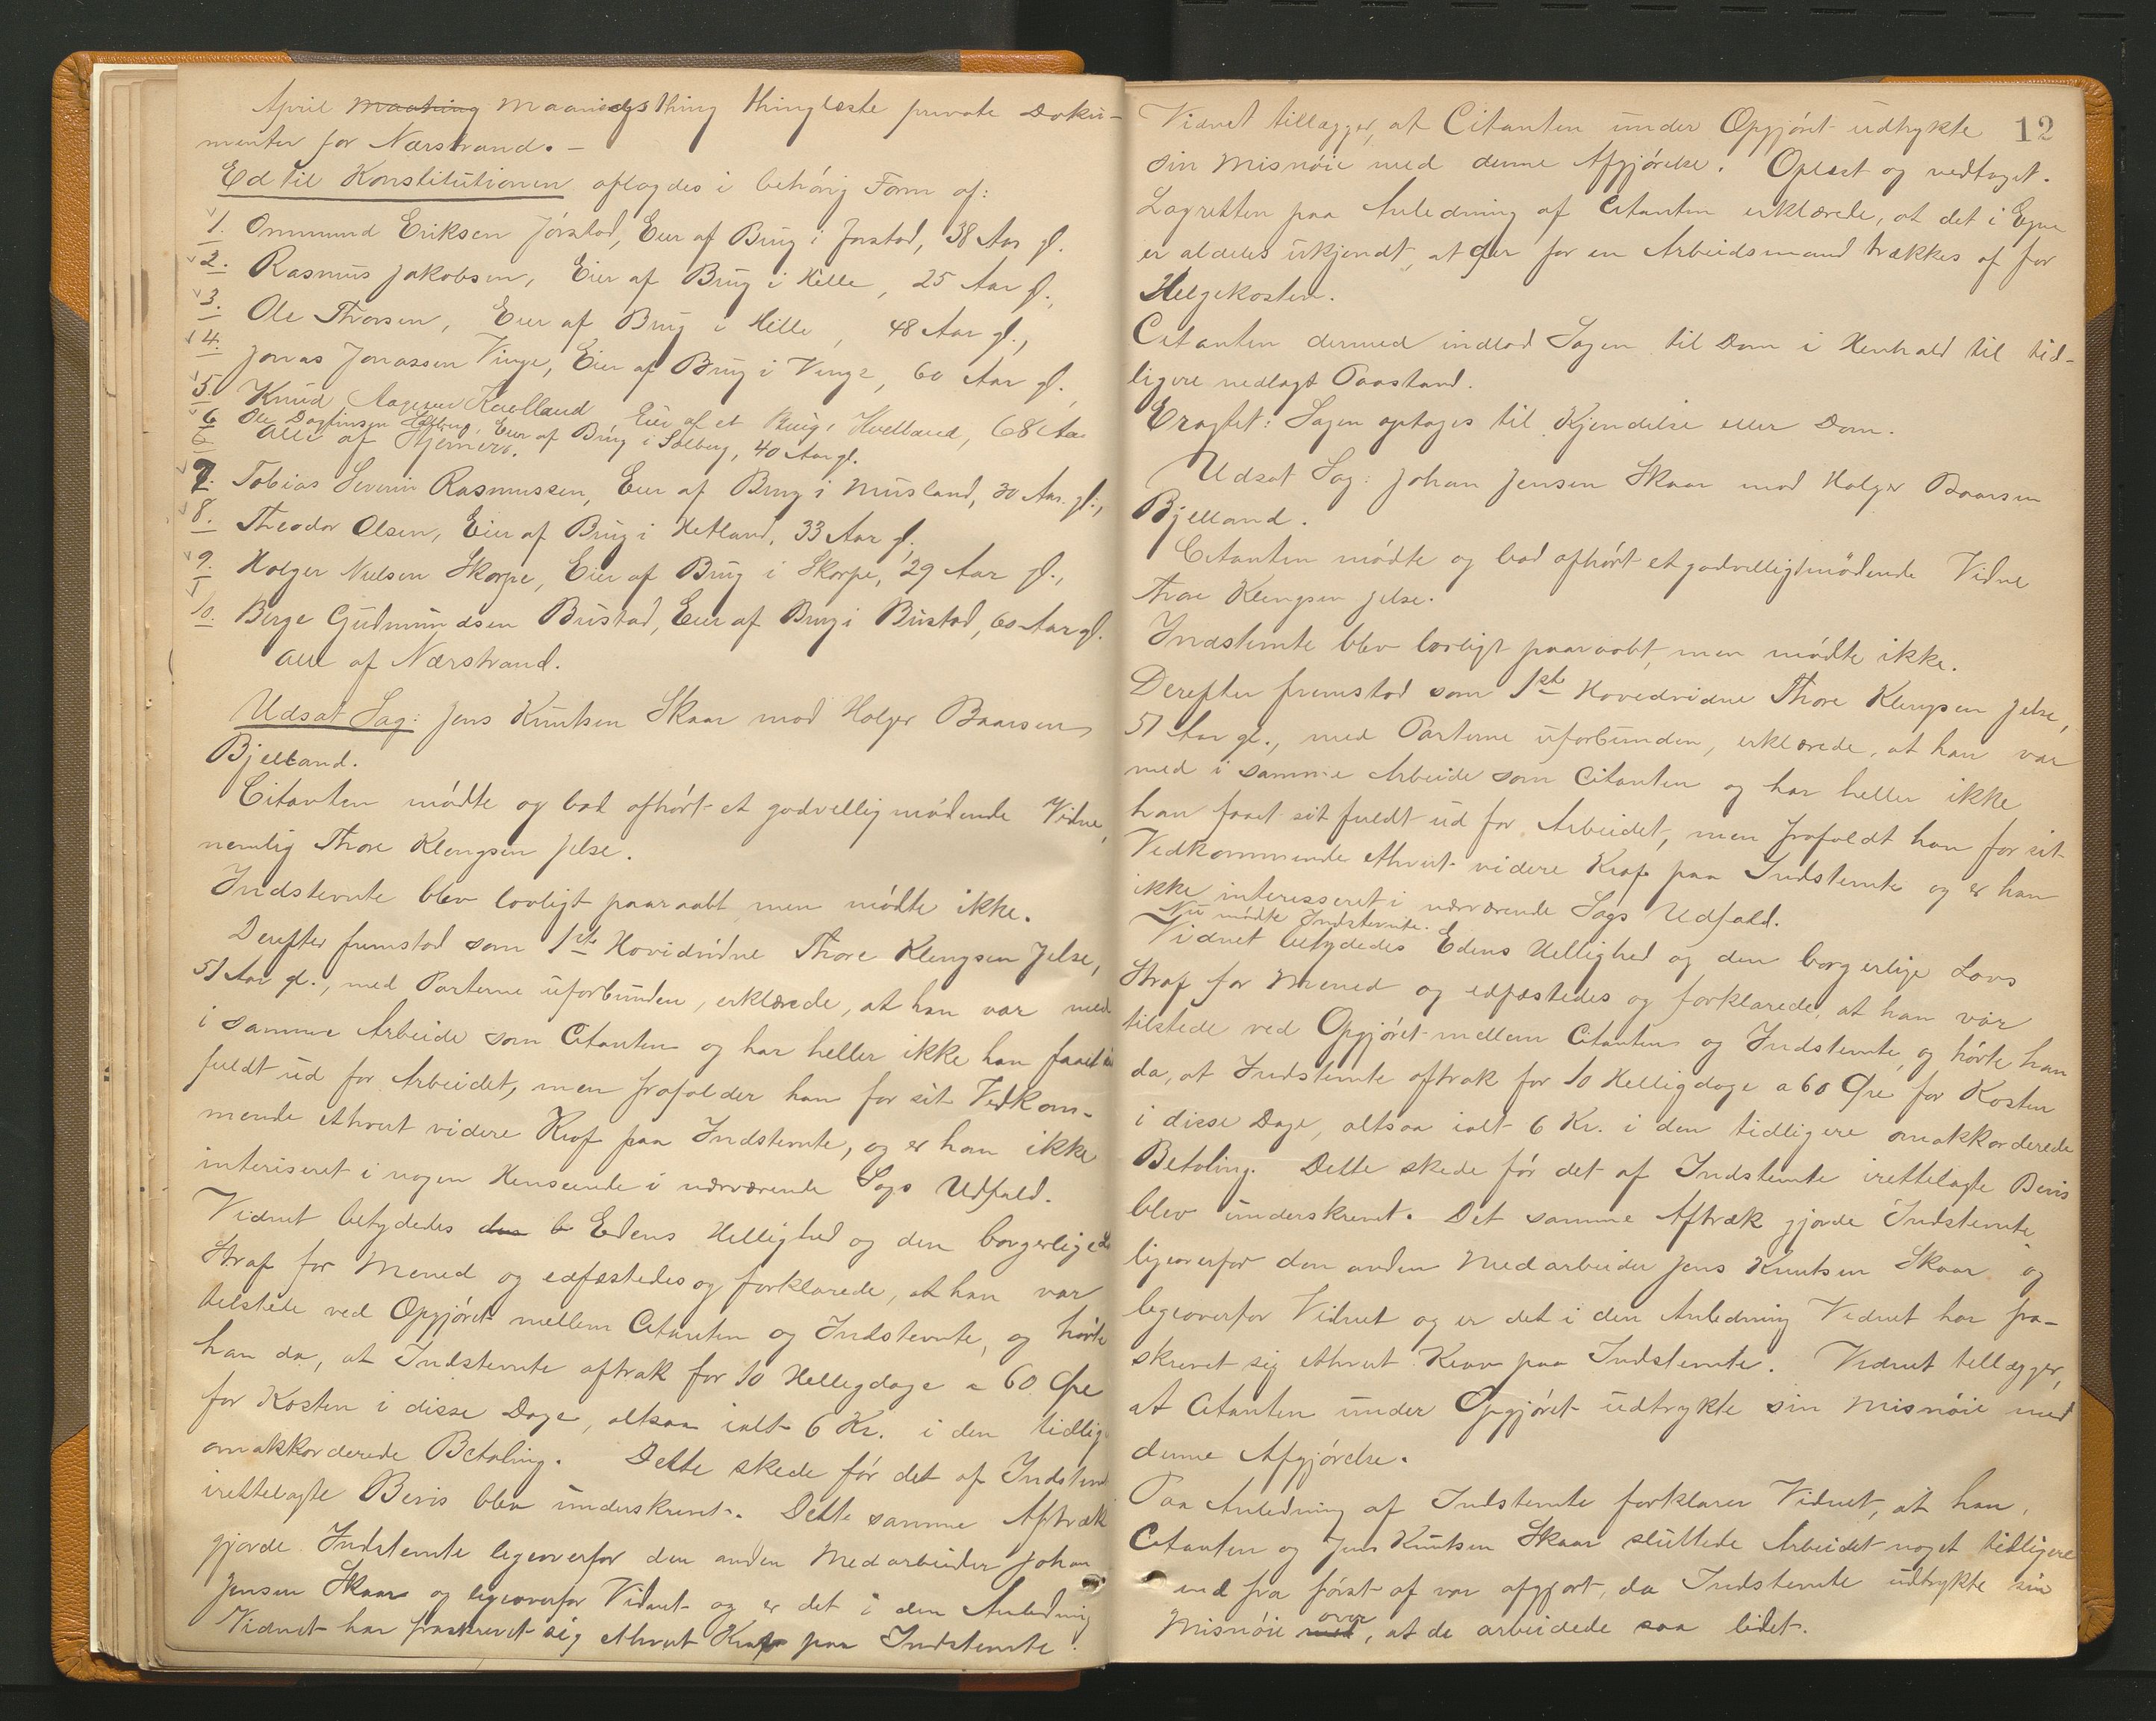 April Maathing Maanedsthing thinglæste private Doku-
menter for Nærstrand. -
Ed til Konstitutionen aflagdes i behørig Form af:
1. Ommund Eriksen Jørstad, Eier af Brug i Jørstad, 38 Aar gl.
2. Rasmus Jakobsen, Eier af Brug i Hille, 25 Aar gl.,
3. Ole Thorsen, Eier af Brug i Hille, 48 Aar gl.,
4. Jonas Jonassen Vinge, Eier af Brug i Vinge, 60 Aar gl.,
5. Knud Aagesen Hvelland Eier af et Brug i Hvelland, 68 Aar
6 Ole Dagfinsen Eier af Brug i Solberg, 40 Aar gl.
6 Alle af Hjermerø.
7. Tobias Severin Rasmussen, Eier af Brug i Musland, 30 Aar gl.,
8. Theodor Olsen, Eier af Brug i Hetland, 33 Aar gl.,
9. Holger Nielsen Skorpe, Eier af Brug i Skorpe, 29 Aar gl.,
10. Berge Gudmundsen Bustad, Eier af Brug i Bustad, 60 Aar gl.
Alle af Nærstrand.
Udsat Sag: Jens Knutsen Skaar mod Holger Baarsen
Bjelland.
Citanten mødte og bad afhørt et godvellig mødende Vidne,
nemlig Thore Klengsen Jelse.
Indstevnte blev lovligt paaraabt men mødte ikke.
Derefter fremstod som 1ste Hovidvidne Thore Klengsen Jelse,
51 Aar gl., med Parterne uforbunden, erklærede, at han var med
i samme Arbeide som Citanten og har heller ikke han faaet sit
fuldt ud for Arbeidet, men frafalder han for sit Vedkom-
mende ethvert videre Kraf paa Indstevnte, og er han ikke
interiseret i nogen Henseende i nærværende Sags Udfald.
Vidnet betydedes den b Edens Hellighed og den borgerlige Lovs
Straf for Mened og edfæstedes og forklarede, at han var
tilstede ved Opgjøret mellem Citanten og Indstevnte, og hørte
han da, at Indstevnte aftrak for 10 Helligdage a 60 Øre
for Kosten i disse Dage, altsaa ialt 6 Kr. i den tidlig
omakkorderede Betaling. Dette skede før det af Indstevnte
irettelagte Bevis blev underskrevet. Dette samme Aftræk
gjorde Indstevnte ligeoverfor den anden Medarbeider Johan
Jensen Skaar og ligeoverfor Vidnet og er det i den Anledning
Vidnet har fraskrevet sig ethvert Kraf paa Indstevnte.
12
Vidnet tillægger, at Citanten under Opgjøret udtrykte
sin Misnøie med denne Afgjørelse. Oplæst og vedtaget.
Lagretten paa Anledning af Citanten erklærede, at det i Egnen
er aldeles ukjendt, at der for en Arbeidsmand trækkes af for
Helgekosten.
Citanten dermed indlod Sagen til Dom i Henhold til tid-
ligere nedlagt Paastand.
Eragtet: Sagen optages til Kjendelse eller Dom.
Udsat Sag: Johan Jensen Skaar mod Holger Baarsen
Bjelland.
Citanten mødte og bad afhørt et godvelligtmødende Vidne
Thore Klengsen Jelse.
Indstemte blev lovligt paaraabt, men mødte ikke.
Derefter fremstod som 1ste Hovedvidne Thore Klengsen Jelse,
51 Aar gl., med Parterne uforbunden, erklærede, at han var
med i samme Arbeide som Citanten og har heller ikke
han faaet sit fuldt ud for Arbeidet, men frafaldt han for sit
Vedkommende ethvert videre Kraf paa Indstemte og er han
ikke interesseret i nærværende Sags Udfald.
Nu mødte Indstevnte.
Vidnet betydedes Edens Hellighed og den borgerlige Lovs
Straf for Mened og edfæstedes og forklarede, at han var
tilstede ved Opgjøret mellem Citanten og Indstemte, og hørte han
da, at Indstemte aftrak for 10 Helligdage a 60 Øre for Kosten
i disse Dage, altsaa ialt 6 Kr. i den tidligere omakkorderede
Betaling. Dette skede før det af Indstemte irettelagte Bevis
blev underskrevet. Det samme Aftræk gjorde Indstemte
ligeoverfor den anden Medarbeider Jens Knutsen Skaar og
ligeoverfor Vidnet og er det i den Anledning Vidnet har fra-
skrevet sig ethvert Krav paa Indstemte. Vidnet tillægger,
at Citanten under Opgjøret udtrykte sin Misnøie med
denne Afgjørelse.
Paa Anledning af Indstemte forklarer Vidnet, at han,
Citanten og Jens Knutsen Skaar sluttede Arbeidet noget tidligere
end fra først af var afgjort, da Indstemte udtrykte sin
Misnøie med over, at de arbeidede saa lidet.